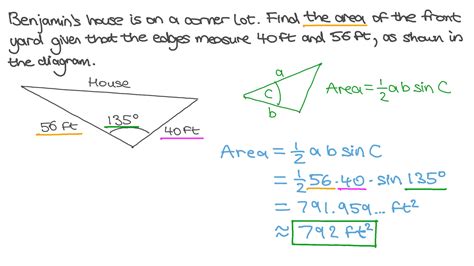 Benjamin's house is on a corner lot. Find the area of the front
yard given that the edges measure 40ft and 56ft, as shown in
the diagram.
House
56 ft
135°
40ft
a
C
b
Area = 1/2 a b sin C
Area = 1/2 a b sin C
= 1/2 56·40·sin 135°
= 791.959... ft²
≈ 792 ft²